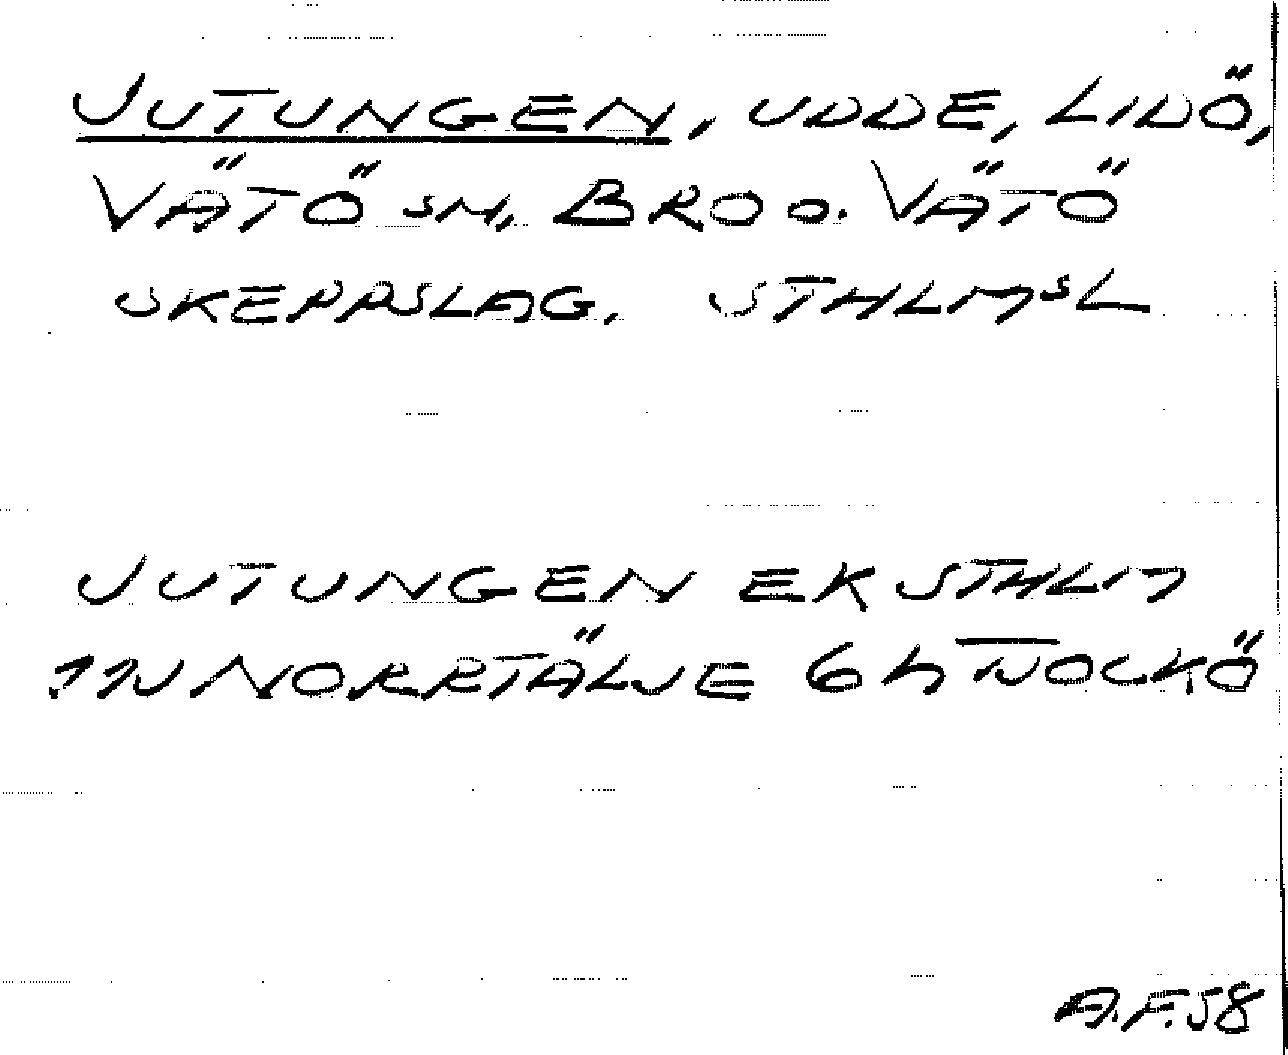 JUTUNGEN, UDDE, LIDÖ,
VÄTÖ SN, BRO O. VÄTÖ
SKEPPSLAG. STHLMSL
JUTUNGEN EK STHLM
11N NORRTÄLJE 6h TJOCKÖ
A.F.58